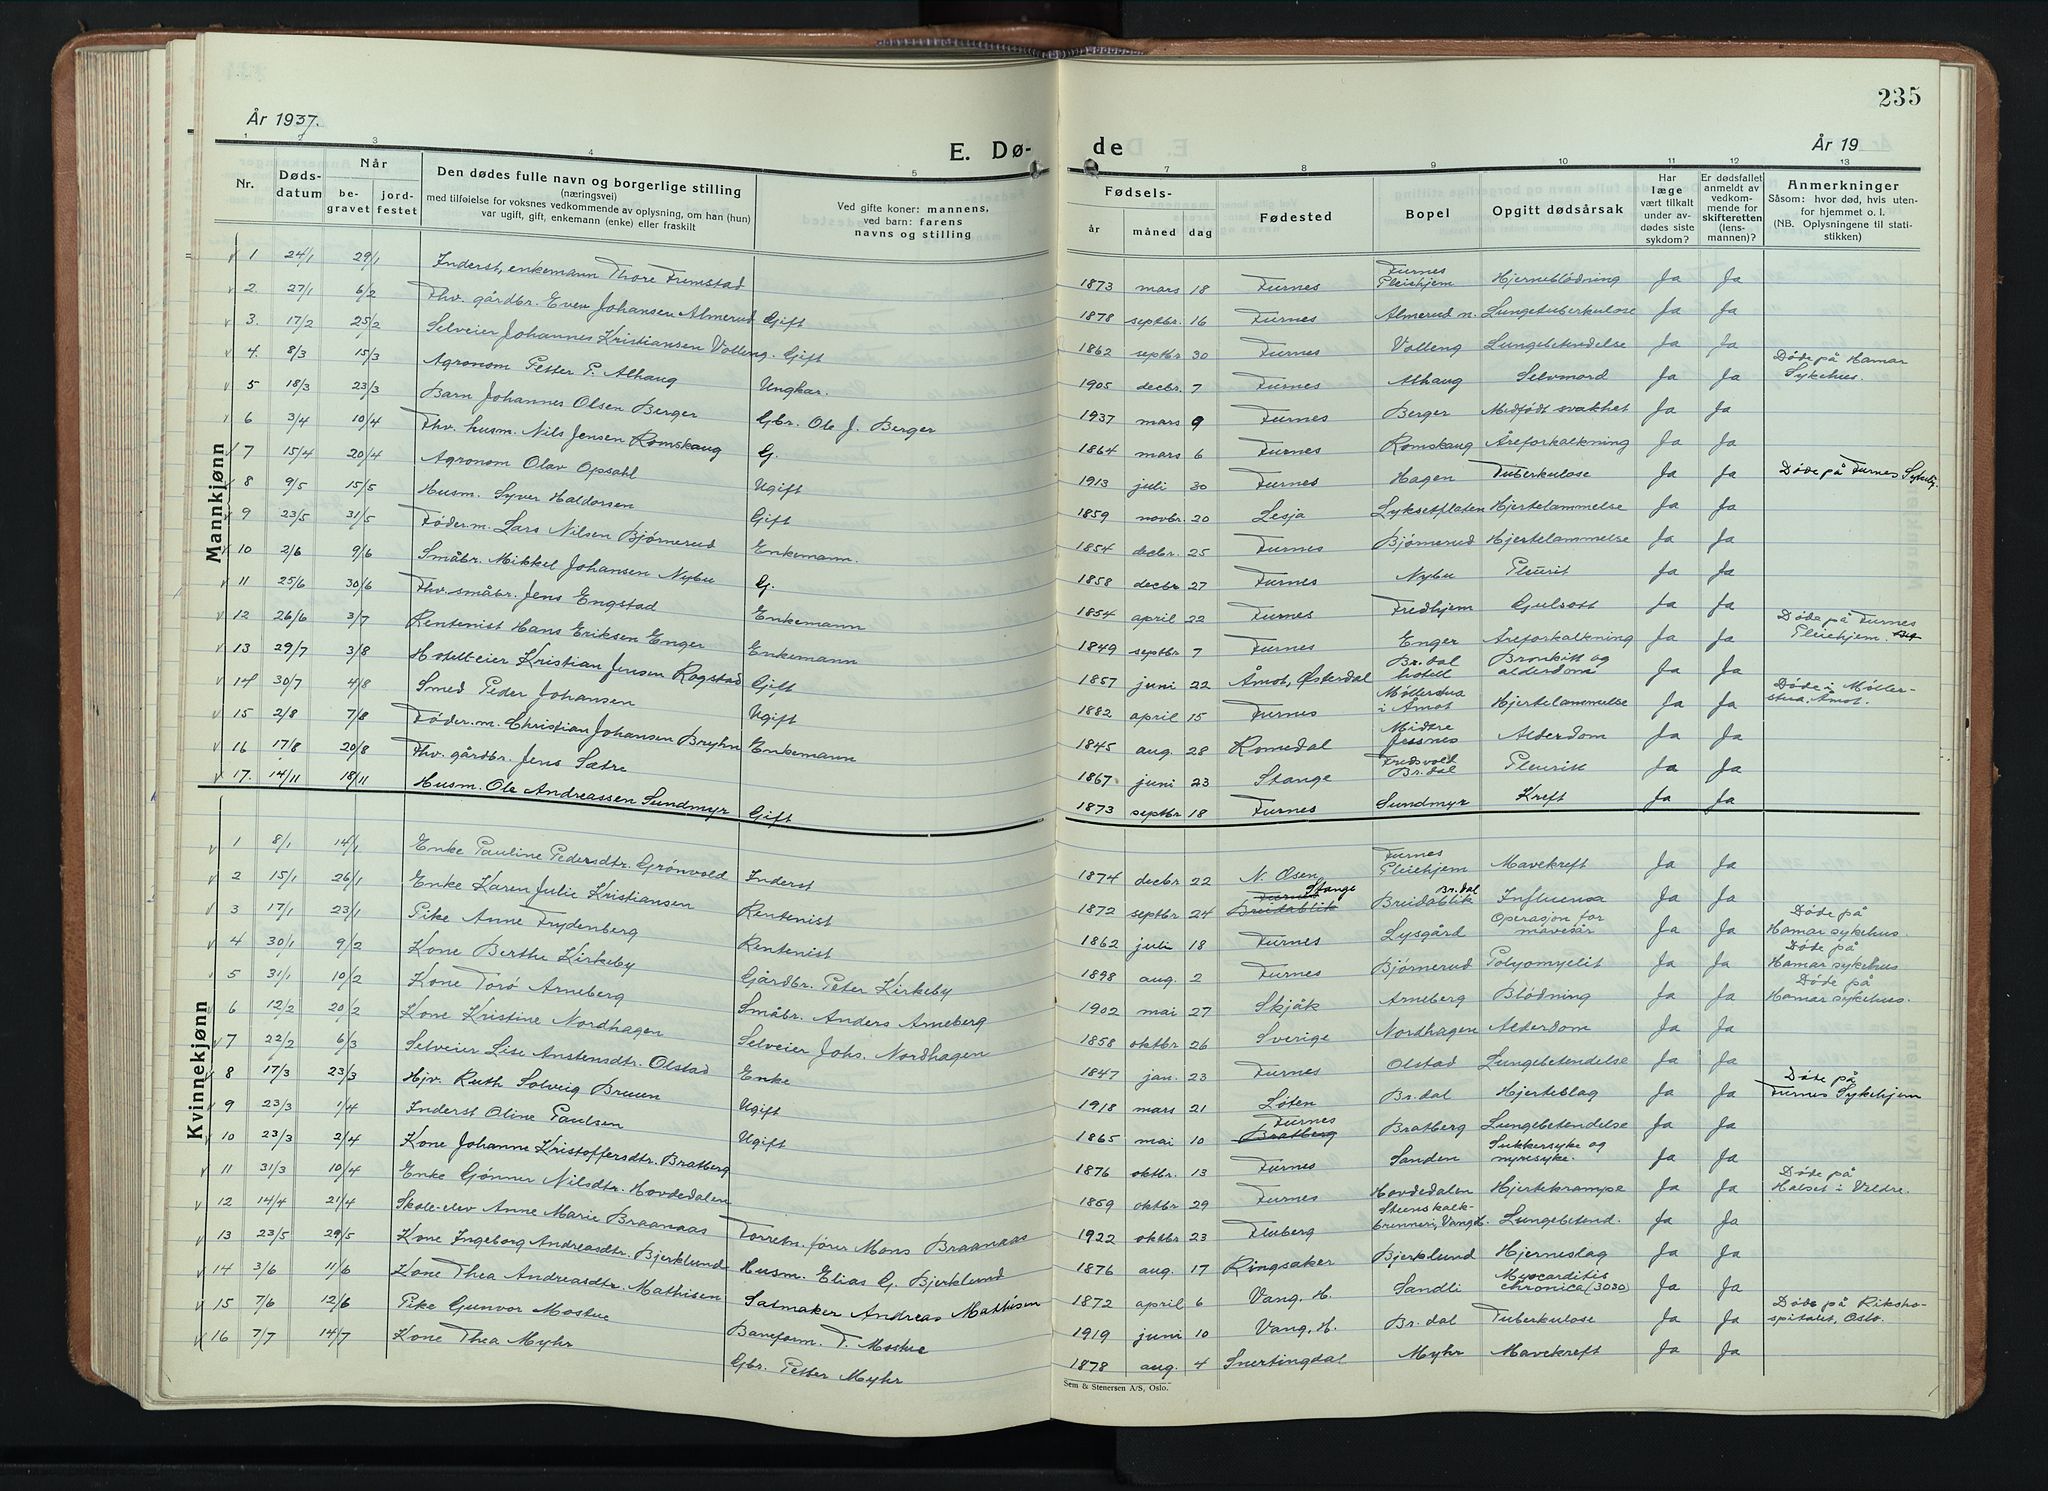 År 1937.
E. Døde
År 19
235
Nr.
Døds-datum
Når
begravet
jordfestet
Den dødes fulle navn og borgerlige stilling
(næringsvei)
med tilføielse for voksnes vedkommende av oplysning, om han (hun)
var ugift, gift, enkemann (enke) eller fraskilt
Ved gifte koner: mannens,
ved barn: farens
navns og stilling
Fødsels-
år måned dag
Fødested
Bopel
Opgitt dødsårsak
Har læge vært tilkalt under avdødes siste sykdom?
Er dødsfallet anmeldt av vedkommende for skifteretten (lensmannen)?
Anmerkninger
Såsom: hvor død, hvis utenfor hjemmet o. l.
(NB. Oplysningene til statistikken)
Mannkjønn
1 24/1 29/1 Inderst, enkemann Thore Fremstad 1873 mars 18 Furnes Furnes Pleiehjem Hjerneblødning Ja Ja
2. 27/1 6/2 Fhv. gårdbr. Even Johansen Almerud Gift 1878 septbr. 16 Furnes Almerud n. Lungetuberkulose Ja Ja
3. 17/2 25/2 Selveier Johannes Kristiansen Volleng. Gift 1862 septbr 30 Furnes Volleng Lungebetendelse Ja Ja
4. 8/3 15/3 Agronom Petter P. Alhaug Ungkar. 1905 decbr. 7 Furnes Alhaug Selvmord Ja Ja Døde på Hamar Sykehus.
5 18/3 23/3 Barn Johannes Olsen Berger Gbr. Ole J. Berger 1937 mars 9 Furnes Berger Medfødt svakhet Ja Ja
6 3/4 10/4 Fhv. husm. Nils Jensen Romskaug G. 1864 mars 6 Furnes Romskaug Åreforkalkning Ja Ja
7 15/4 20/4 Agronom Olav Opsahl Ugift 1913 juli 30 Furnes Hagen Tuberkulose Ja Ja Døde på Furnes Sykehj.
8 9/5 15/5 Husm. Syver Haldorsen Gift 1859 novbr. 20 Lesja Lyksetplaten Hjertelammelse Ja Ja
9 23/5 31/5 Føder.m. Lars Nilsen Bjørnerud Enkemann. 1854 decbr. 25 Furnes Bjørnerud Hjertelammelse Ja Ja
10 2/6 9/6 Småbr. Mikkel Johansen Nybu G. 1858 decbr 27 Furnes Nybu Pleurit Ja Ja
11 25/6 30/6 Fhv. småbr. Jens Engstad Enkemann 1854 april 22 Furnes Fredhjem Gulsott Ja Ja Døde på Furnes Pleiehjem.
12 26/6 3/7 Rentenist Hans Eriksen Enger Enkemann 1849 septbr 7 Furnes Enger Åreforkalkning Ja Ja
13 29/7 3/8 Hotelleier Kristian Jensen Rogstad Gift 1857 juni 22 Åmot, Østerdal Br. dal hotell Bronkitt og alderdom Ja Ja
14 30/7 4/8 Smed Peder Johansen Ugift 1882 april 15 Furnes Møllerstua i Åmot Hjertelammelse Ja Ja Døde i Møllerstua, Åmot.
15 2/8 7/8 Føder.m. Christian Johansen Bryhn Enkemann 1845 aug. 28 Romedal Midtre Jessnes Alderdom Ja Ja
16 17/8 20/8 Fhv. gårdbr. Jens Sætre 1867 juni 23 Stange Fredsvold Br. dal Pleuritt Ja Ja
17. 14/11 18/11 Husm. Ole Andreassen Sundmyr Gift 1873 septbr 18 Furnes Sundmyr Kreft Ja Ja
Kvinnekjønn
1 8/1 14/1 Enke Pauline Pedersdtr. Grønvold Inderst 1874 decbr 22 N. Osen Furnes Pleiehjem Mavekreft Ja Ja
2 15/1 26/1 Enke Karen Julie Kristiansen Rentenist 1872 septbr 24 Furnes Breidablik Stange Breidablik Br. dal Influensa Ja Ja
3 17/1 23/1 Pike Anne Frydenberg Rentenist 1862 juli 18 Furnes Lysgård Operasjon for mavesår Ja Ja Døde på Hamar sykehus.
4 30/1 9/2 Kone Berthe Kirkeby Gårdbr. Peter Kirkeby 1898 aug. 2 Furnes Bjørnerud Polyomyelit Ja Ja Døde på Hamar sykehus
5 31/1 10/2 Kone Torø Arneberg Småbr. Anders Arneberg 1902 mai 27 Skjåk Arneberg Blødning Ja Ja Døde på Hamar sykehus.
6 12/2 20/2 Kone Kristine Nordhagen Selveier Johs. Nordhagen 1858 oktbr 26 Sverige Nordhagen Alderdom Ja Ja
7 22/2 6/3 Selveier Lise Anstensdtr. Olstad Enke 1847 jan. 23 Furnes Olstad Lungebetendelse Ja Ja
8 17/3 23/3 Hjv. Ruth Solveig Bruen Ugift 1918 mars 21 Løten Br. dal Hjerteslag Ja Ja Døde på Furnes Sykehjem
9 23/3 1/4 Inderst Oline Paulsen Ugift 1865 mai 10 Furnes Bratberg Bratberg Lungebetendelse Ja Ja
10 23/3 2/4 Kone Johanne Kristoffersdtr. Bratberg 1876 oktbr. 13 Furnes Sanden Sukkersyke og nyresyke. Ja Ja
11 31/3 10/4 Enke Gønner Nilsdtr. Hovdedalen 1859 oktbr 29 Furnes Hovdedalen Hjertekrampe Ja Ja Døde på Halset i Veldre.
12 14/4 21/4 Skole-elev Anne Marie Braanaas Forretn. fører Mons Braanaas 1922 oktbr 23 Fluberg Steens kalkbrenneri, Vang H. Lungebetend. Ja Ja
13 23/5 29/5 Kone Ingeborg Andreasdtr. Bjerklund Husm. Elias G. Bjerklund 1876 aug. 17 Ringsaker Bjerklund Hjerneslag Ja Ja
14 3/6 11/6 Kone Thea Andreasdtr. Mathisen Salmaker Andreas Mathisen 1872 april 6 Vang, H. Sandli Myocarditis chronica (3030) Ja Ja
15 7/6 12/6 Pike Gunvor Mostue Baneform. T. Mostue 1919 juni 10 Vang, H. Br. dal Tuberkulose Ja Ja Døde på Rikshospitalet, Oslo.
16 7/7 14/7 Kone Thea Myhr Gbr. Petter Myhr 1878 aug. 4 Snertingdal Myhr Mavekreft Ja Ja
Sem & Stenersen A/S, Oslo.